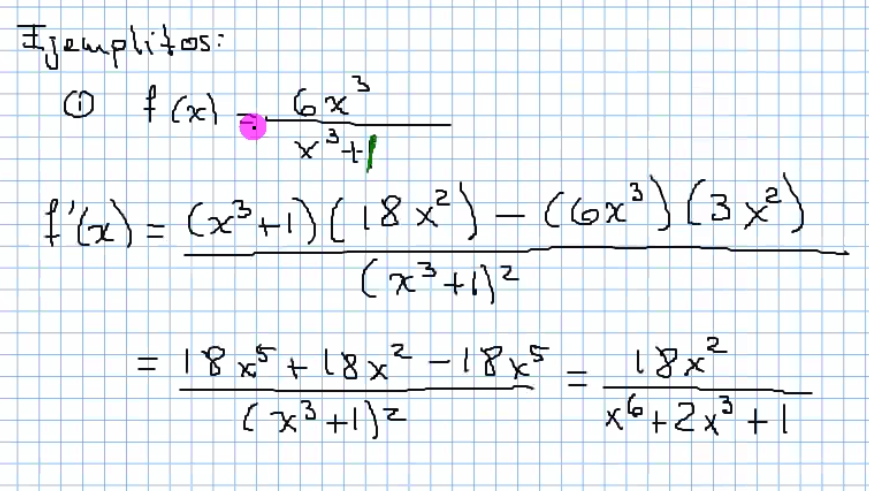 Ejemplitos:
① f(x) = 6x³ / x³+1
f'(x) = (x³+1)(18x²) − (6x³)(3x²) / (x³+1)²
= 18x⁵+18x²−18x⁵ / (x³+1)² = 18x² / x⁶+2x³+1